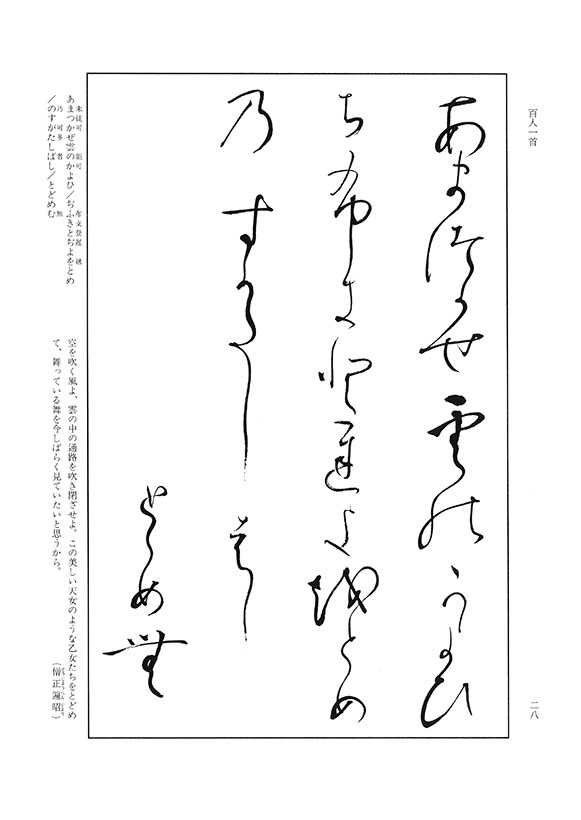 百人一首
二八
あ末徒可せ雲能可よひ
ち布支登遅よ越とめ
乃す可多し者し
とゝめ無
あまつかぜ雲のかよひ／ぢふきとぢよをとめ
／のすがたしばし／とどめむ
空を吹く風よ、雲の中の通路を吹き閉ざせよ。この美しい天女のような乙女たちをとどめ
て、舞っている舞を今しばらく見ていたいと思うから。
（僧正遍昭）